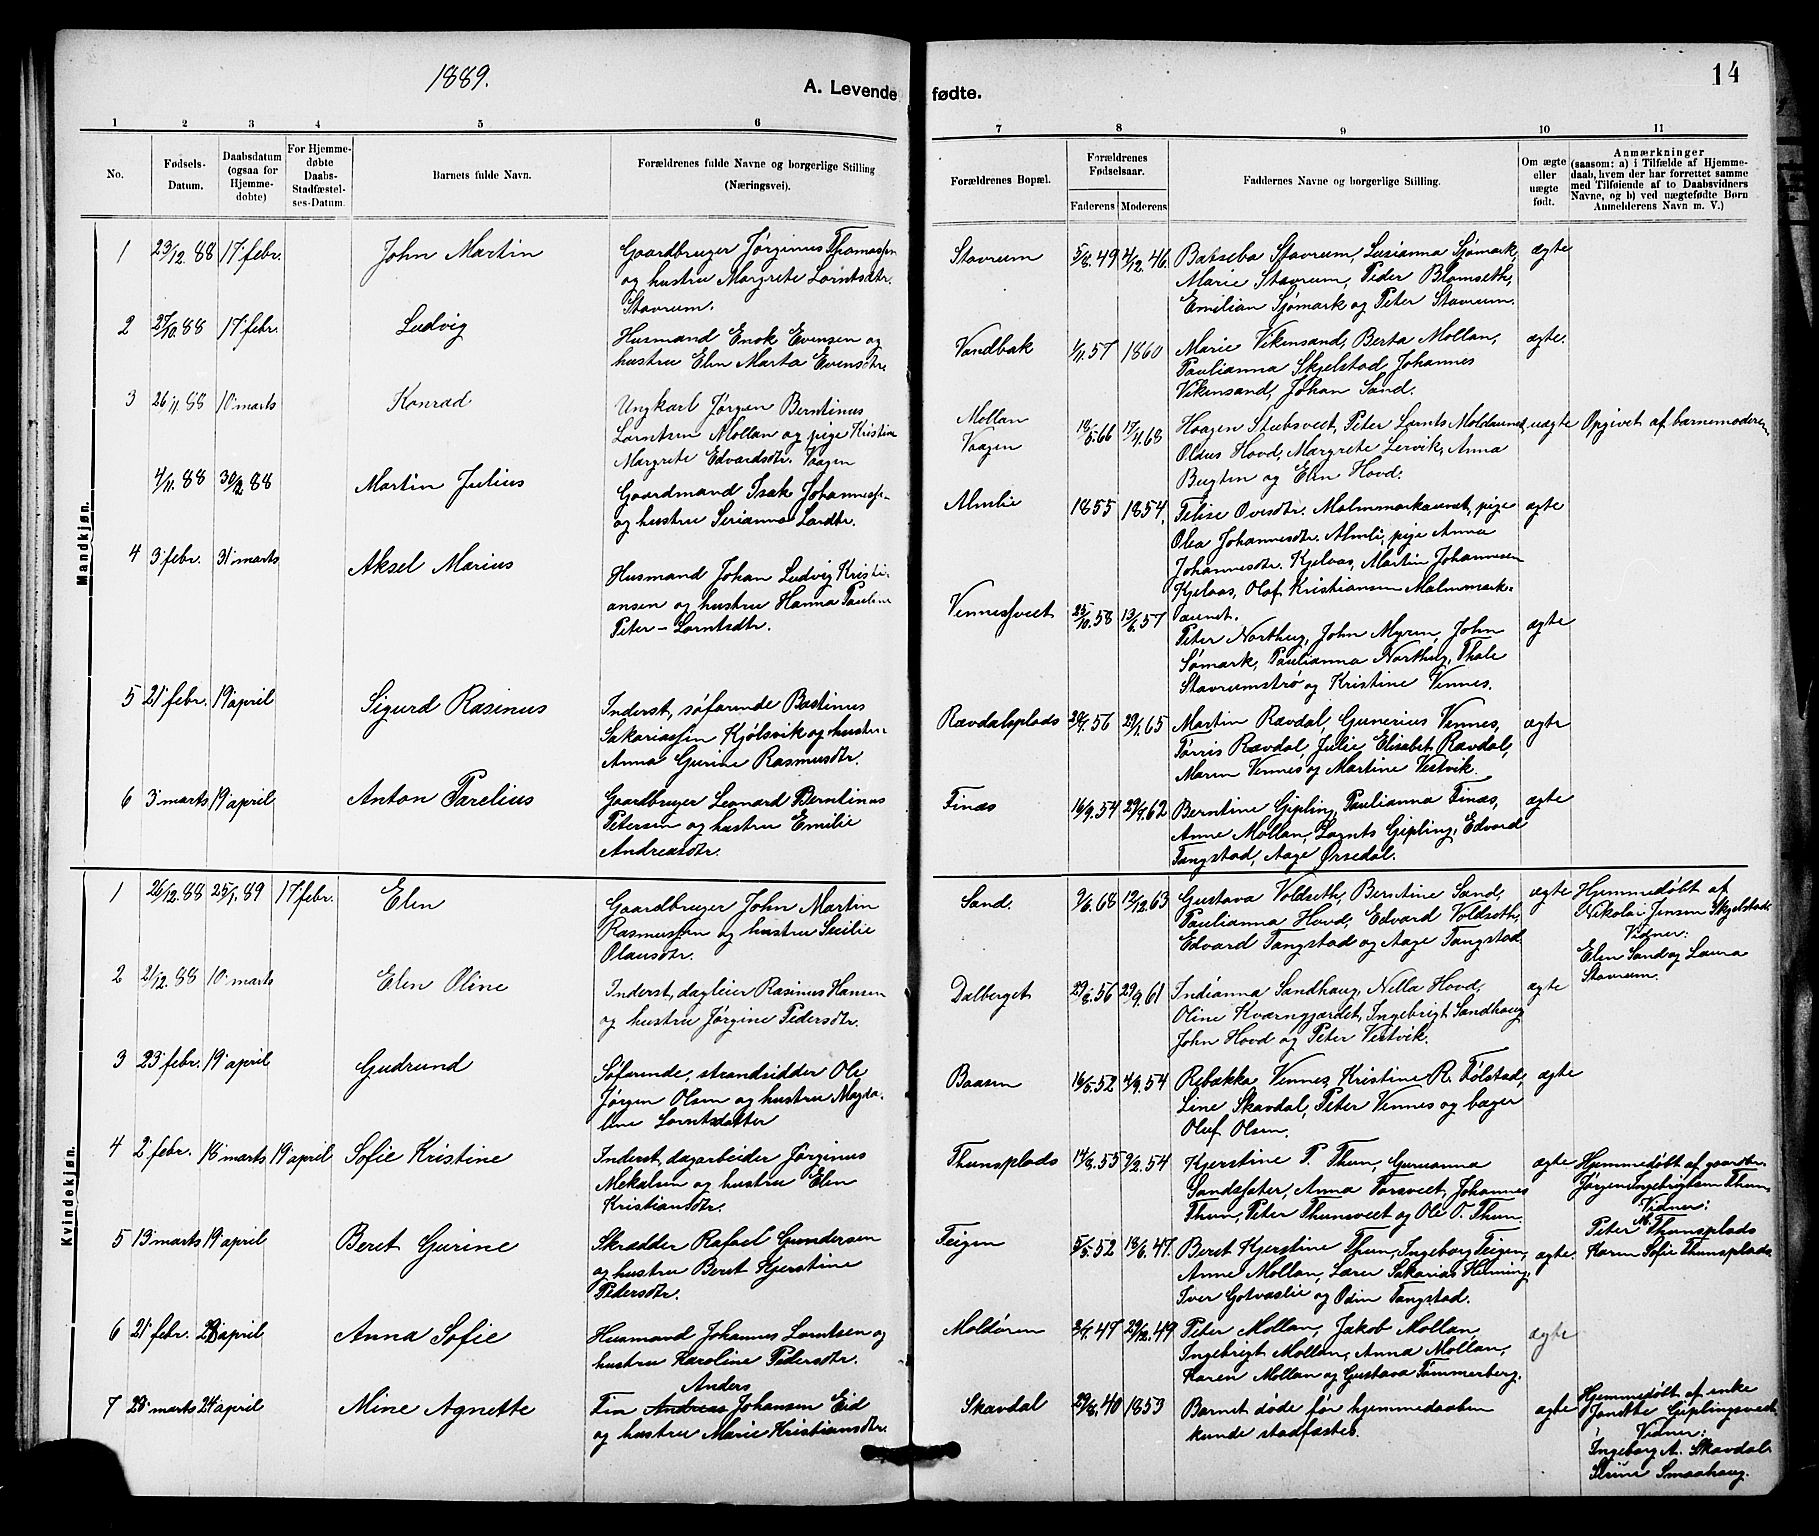 1889.
A. Levende fødte.
14
1 2 3 4 5 6 7 8 9 10 11
No.
Fødsels-
Datum.
Daabsdatum
(ogsaa for
Hjemme-
døbte)
For Hjemme-
døbte
Daabs-
Stadfæstel-
ses-Datum.
Barnets fulde Navn.
Forældrenes fulde Navne og borgerlige Stilling
(Næringsvei).
Forældrenes Bopæl.
Forældrenes
Fødselsaar.
Faderens Moderens
Faddernes Navne og borgerlige Stilling.
Om ægte
eller
uægte
født.
Anmærkninger
(saasom: a) i Tilfælde af Hjemme-
daab, hvem der har forrettet samme
med Tilføiende af to Daabsvidners
Navne, og b) ved uægtefødte Børn
Anmelderens Navn m. V.)
Mandkjøn.
1 23/12 88 17 febr. John Martin
Gaardbruger Jørginus Thomassen
og hustru Margrete Lorntsdtr.
Stavrum.
Stavrum 5/8 49 4/12 46.
Batseba Stavrum, Lusianna Sjømark,
Marie Stavrum, Peder Blomseth,
Emilian Sjømark og Peter Stavrum.
ægte
2 27/10 88 17 febr. Ludvig
Husmand Enok Evensen og
hustru Elin Marta Evensdtr
Vandbak 1/11 57 1860
Marie Vikensand, Berta Mollan,
Paulianna Skjelstad, Johannes
Vikensand, Johan Sand.
ægte.
3 26/11 88 10 marts Konrad
Ungkarl Jørgen Berntinus
Lorntsen Mollan og pige Kristine
Margrete Edvardsdtr. Vaagen
Mollan
Vaagen
18/5 66 17/4 68
Haagen Stubsveet, Peter Lornts Moldaunet,
Olaus Hovd, Margrete Lervik, Anna
Bugten og Elin Hovd.
uægte Opgivet af barnemoderen
4/11 88 30/12 88 Martin Julius
Gaardmand Isak Johanness.
og hustru Serianna Larsdtr.
Almlie 1855 1854.
Felise Ovesdtr. Malmmarkaunet, pige
Olea Johannesdtr. Almli, pige Anna
Johannesdtr. Kjelaas, Martin Johannesen
Kjelaas, Olaf Kristiansen Malmmark-
aunet.
ægte
4 3 febr. 31 marts Aksel Marius
Husmand Johan Ludvig Kristi-
ansen og hustru Hanna Pauline
Peter-Lorntsdtr.
Vennessveet 25/10 58 13/6 57
Peter Northug, John Myren, John
Sømark, Paulianna Northug, Thale
Stavrumstrø og Kristine Vennes.
ægte
5 21 febr. 19 april Sigurd Rasinus
Inderst, søfarende Bastinus
Sakariassen Kjølsvik og hustru
Anna Gurine Rasmusdtr.
Rævdalsplads 56 29/1 65
Martin Rævdal, Gunerius Vennes,
Tørris Rævdal, Julie Elisabet Rævdal,
Maren Vennes og Martine Vestvik.
ægte
6 3 marts 19 april Anton Parelius
Gaardbruger Leonard Berntinus
Petersen og hustru Emilie
Andreasdtr.
Finæs 16/9 54 29/7 62
Berntine Gipling, Paulianna Finæs,
Anne Mollan, Lornts Gipling, Edvard
Tangstad, Aage Ørsedal.
ægte
Kvindekjøn.
1 26/12 88 25/1 89 17 febr. Elen
Gaardbruger John Martin
Rasmussen og hustru Secilie
Olausdtr.
Sand 9/6 68 12/12 63
Gustava Voldseth, Berntine Sand,
Paulianna Hovd, Edvard Voldseth,
Edvard Tangstad og Aage Tangstad
ægte
Hjemmedøbt af
Nikolai Jensen Skjelstad.
Vidner:
Elen Sand og Laura
Stavrum.
2 21/12 88 10 marts Elen Oline
Inderst, dagleier Rasinus Hansen
og hustru Jørgine Pedersdtr.
Dalberget 29/8 56 29/9 61
Indianna Sandhaug, Nella Hovd,
Oline Kværngjærdet, Ingebrigt Sandhaug
John Hovd og Peter Vestvik.
ægte
3 23 febr. 19 april Gudrund
Søfarende, strandsidder Ole
Jørgen Olsen og hustru Magda-
lene Lorntsdatter
Baasen 16/5 52 4/9 54
Rebækka Vennes, Kristine R. Følstad,
Line Skavdal, Peter Vennes og bager
Oluf Olsen.
ægte
4 2 febr. 18 marts 19 april Sofie Kristine
Inderst, dagarbeider Jørginus
Mekalsen og hustru Elen
Kristiansdtr.
Thunsplads 14/8 55 9/2 54
Kjerstine P. Thun, Gurianna
Sandsfater, Anna Torsveet, Johannes
Thun, Peter Thunsveet og Ole O. Thun.
ægte
Hjemmedøbt af gaardbr.
Jørgen Ingebrigtsen Thun.
Vidner:
Peter M. Thunsplads
Karen Sofie Thunsplads.
5 13 marts 19 april Beret Gurine
Skrædder Rafael Gundersen
og hustru Beret Kjerstine
Pedersdtr.
Teigen 5/5 52 13/6 47.
Beret Kjerstine Thun, Ingeborg Teigen,
Anne Mollan, Lærer Sakarias Heming,
Iver Gotvaslie og Odin Tangstad.
ægte.
6 21 febr. 28 april Anna Sofie
Husmand Johannes Lorntsen og
hustru Karoline Pedersdtr.
Moldøren 3/7 47 29/12 49
Peter Mollan, Jakob Mollan,
Ingebrigt Mollan, Anna Mollan,
Karen Mollan og Gustava Tømmerberg.
ægte
7 23 marts 24 april Mine Agnette
Anders
Fin Andreas Johansen Eid
og hustru Marie Kristiansdtr.
Skavdal 29/8 40 1853
Barnet døde før hjemmedaaben
kunde stadfæstes.
ægte
Hjemmedøbt af enke
Jonette Giplingsveet.
Vidner:
Ingeborg A. Skavdal.
Smaahaug.